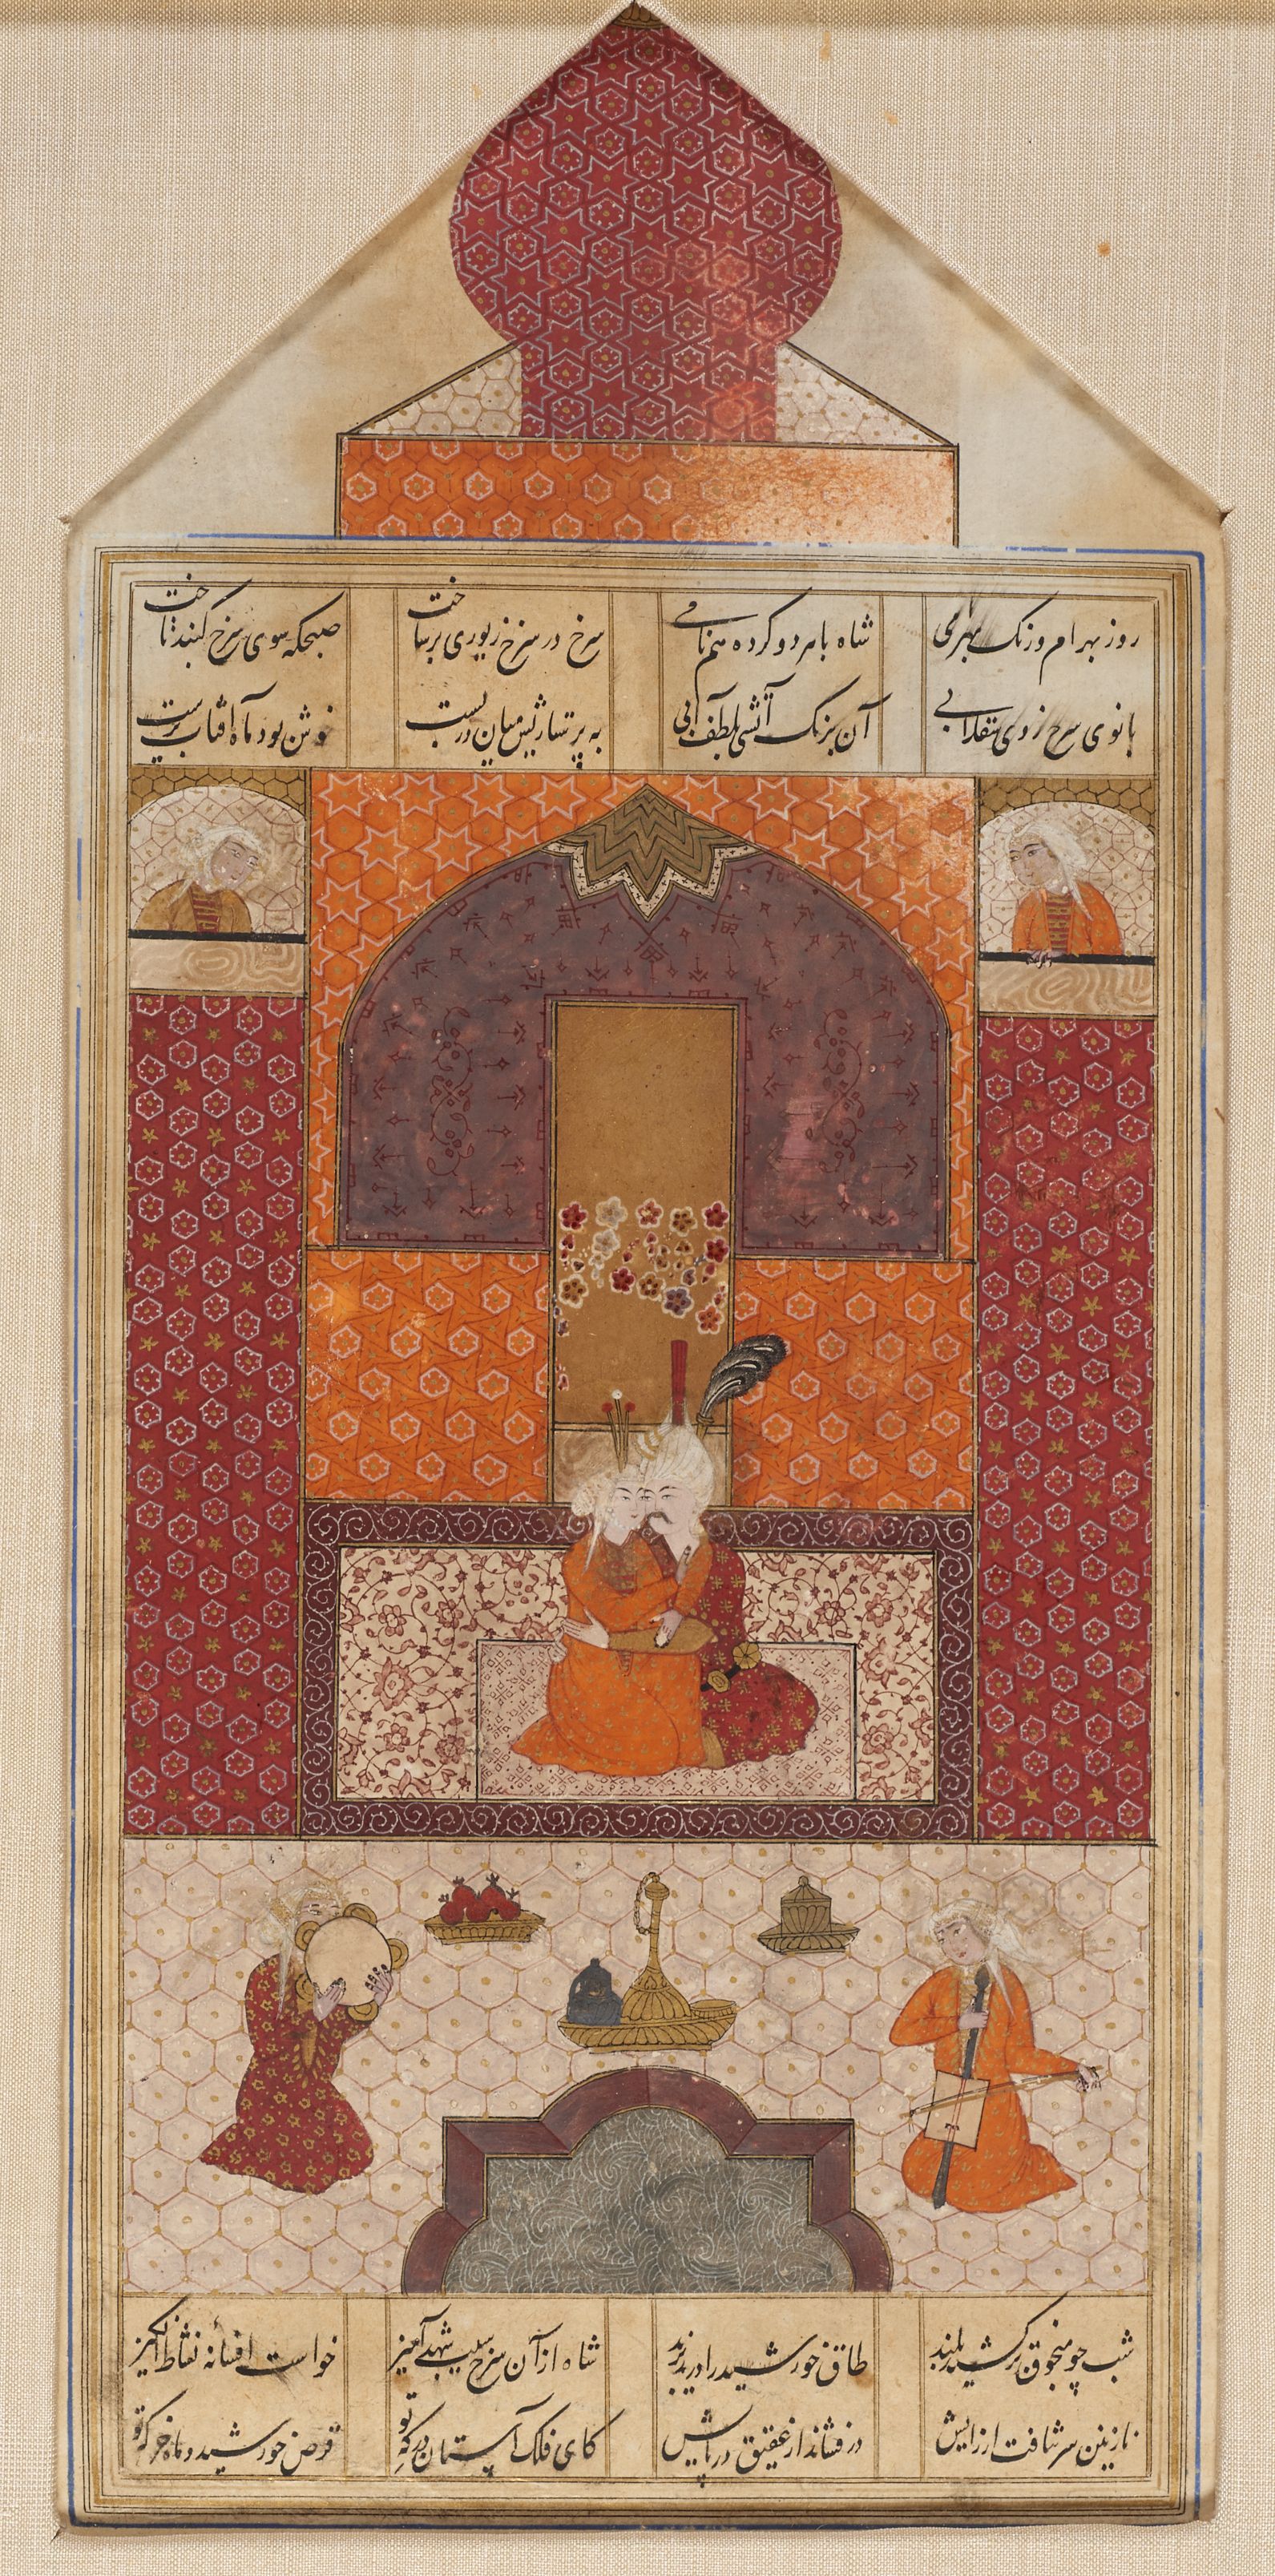 روز بهرام و رنگ بهرامی شاه با هر دو کرده هم نامی سرخ در سرخ زیوری برساخت صبحگه سوی سرخ گنبد تاخت
بانوی سرخ روی سقلابی آن برنگ آتشی بلطف آبی به پرستاریش میان دربست خوش بود ماه افتاب پرست
شب چو منجوق برکشید بلند طاق خورشید را درید پرند شاه از آن سرخ سیب شهد آمیز خواست افسانه نشاط انگیز
نازنین سر نتافت از رایش در فشاند از عقیق در پایش کای فلک آستان درگه تو قرص خورشید و ماه خرگه تو